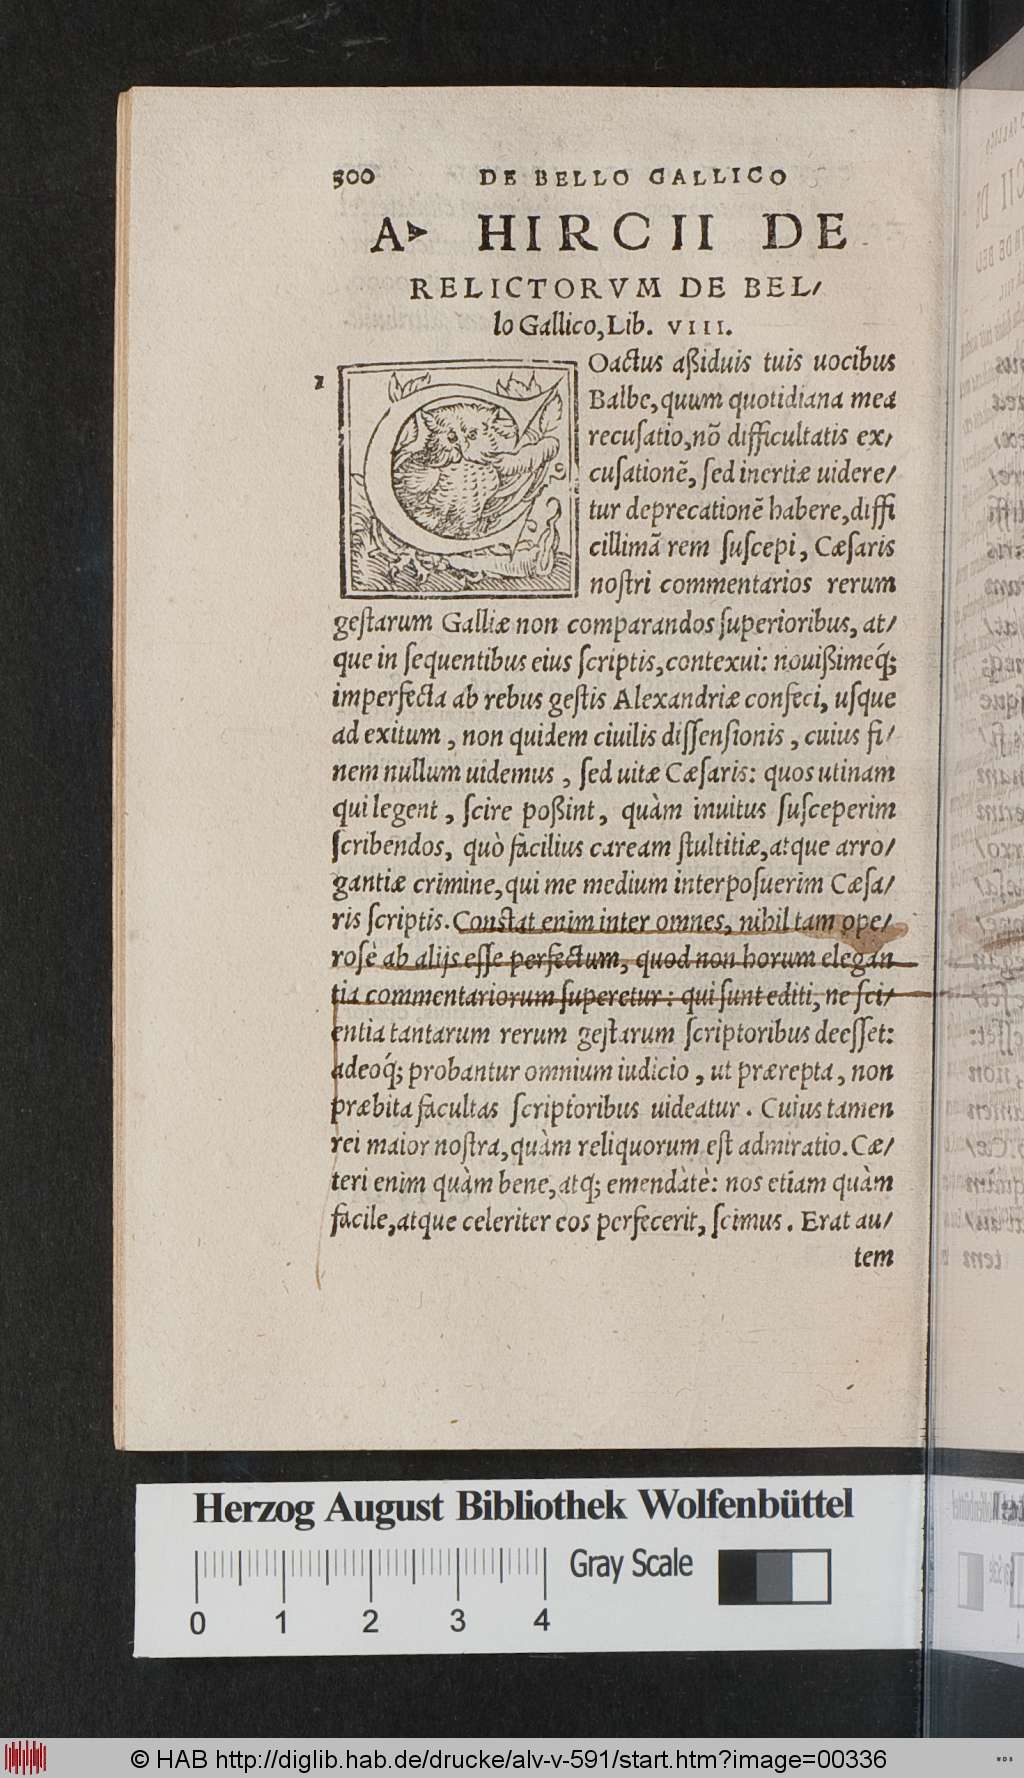 300 DE BELLO GALLICO
A▸ HIRCII DE
RELICTORVM DE BEL/
lo Gallico, Lib. VIII.
1
COactus aßiduis tuis uocibus
Balbe, quum quotidiana mea
recusatio, nō difficultatis ex/
cusationē, sed inertiæ uidere/
tur deprecationē habere, diffi
cillimā rem suscepi, Cæsaris
nostri commentarios rerum
gestarum Galliæ non comparandos superioribus, at/
que in sequentibus eius scriptis, contexui: nouißimeq́;
imperfecta ab rebus gestis Alexandriæ confeci, usque
ad exitum, non quidem ciuilis dissensionis, cuius fi/
nem nullum uidemus, sed uitæ Cæsaris: quos utinam
qui legent, scire poßint, quàm inuitus susceperim
scribendos, quò facilius caream stultitiæ, atque arro/
gantiæ crimine, qui me medium interposuerim Cæsa/
ris scriptis. Constat enim inter omnes, nihil tam ope/
rosè ab alijs esse perfectum, quod non horum elegan
tia commentariorum superetur: qui sunt editi, ne sci/
entia tantarum rerum gestarum scriptoribus deesset:
adeoq́; probantur omnium iudicio, ut prærepta, non
præbita facultas scriptoribus uideatur. Cuius tamen
rei maior nostra, quàm reliquorum est admiratio. Cæ/
teri enim quàm bene, atq; emendàtè: nos etiam quàm
facile, atque celeriter eos perfecerit, scimus. Erat au/
tem
Herzog August Bibliothek Wolfenbüttel
0 1 2 3 4 Gray Scale
© HAB http://diglib.hab.de/drucke/alv-v-591/start.htm?image=00336